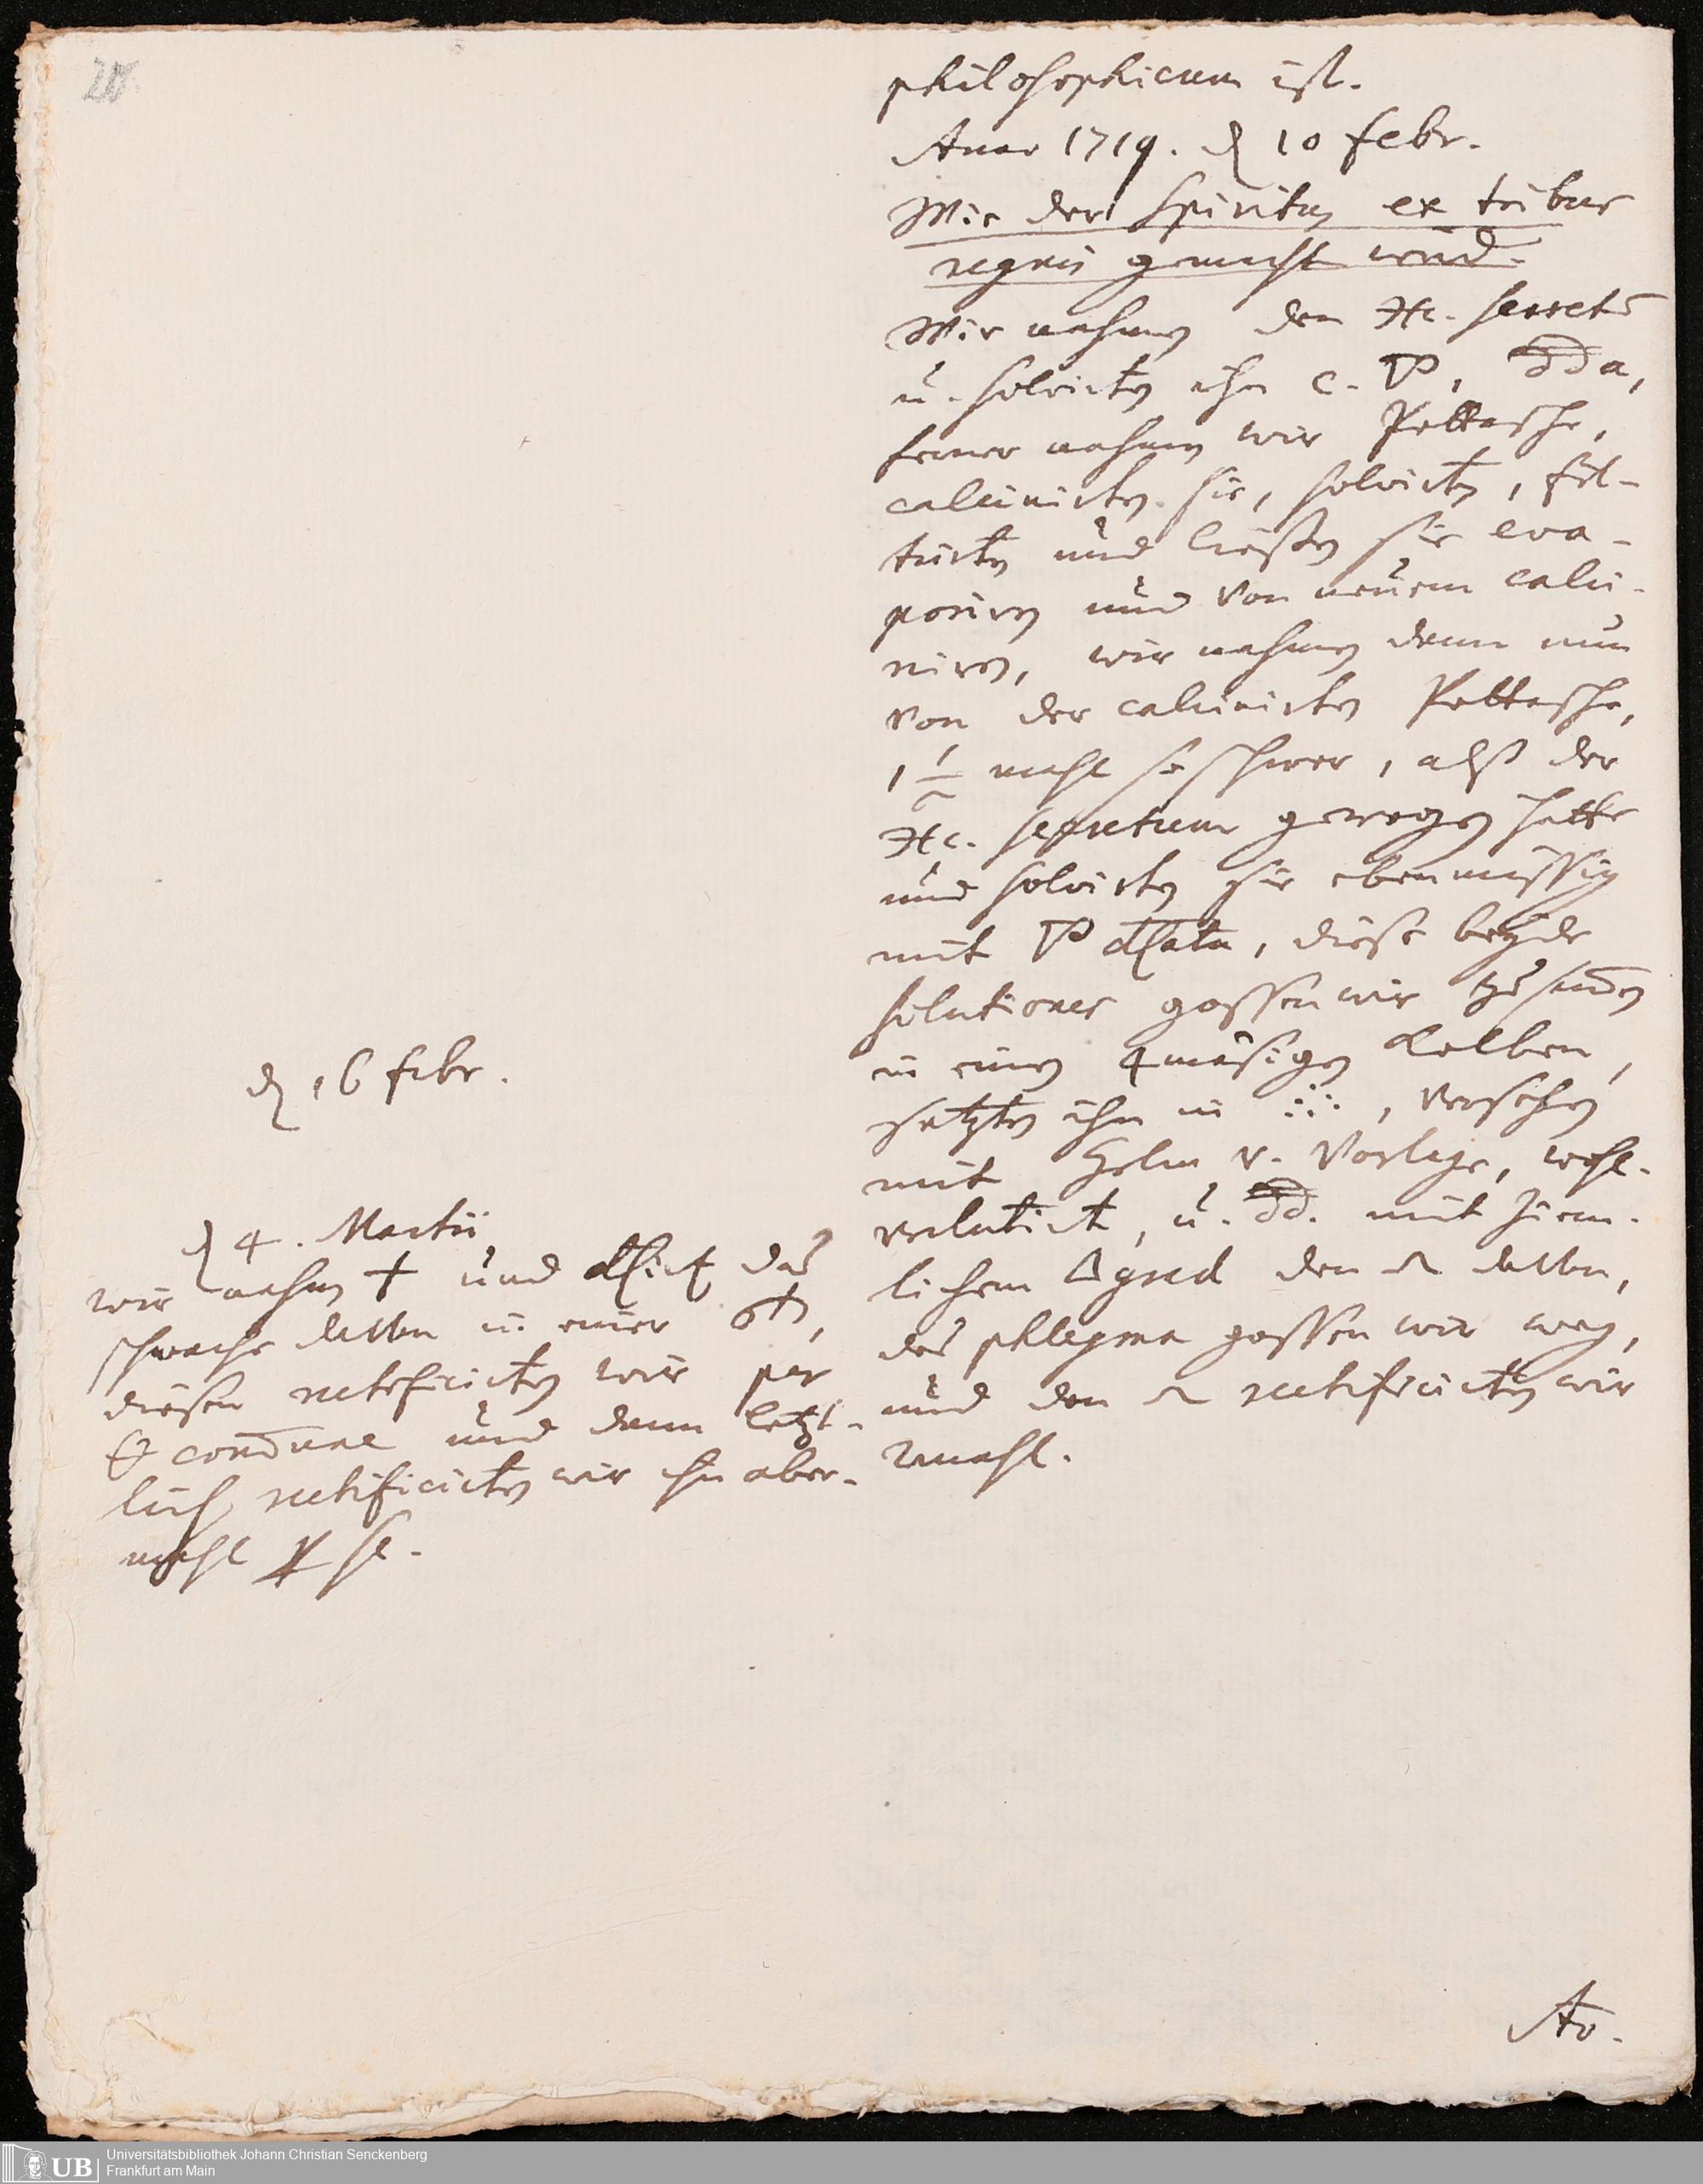 20
philosophicum ist.
Anno 1719. d 10 febr.
Wie der Spiritus ex tribus
regnis gemacht wird.
Wir nahmen den secretũ
ũ. solvirten ihn c. 🜄,
ferner nahmen wir Pottasche,
calcinirten sie, solvirten, fil-
trirten und liessen sie eva-
poriren und von neuem calci-
niren, wir nahmen denn nun
von der calcinirten Pottasche,
1 1/2 mahl so schwer, alß der
secretum gewogen hatte
und solvirten sie ebenmässig
mit dllata, diese beyde
solutiones gossen wir zusam̄en
in einen 4 mäsigen Kolben,
setzten ihn in ∴, versehen
mit Helm v. Vorlage, wohl
verlutirt, ũ. mit ziem-
lichem △ grad den
das phlegma gossen wir weg,
und den rectificirten wir
2 mahl.
d 16 febr.
d 4. Martii
wir nahmen † und das
schwache in einer
diesen rectificirten wir per
und dann letzt-
lich rectificirten wir ihn aber-
mahl se.
Ao.
UB
Universitätsbibliothek Johann Christian Senckenberg
Frankfurt am Main